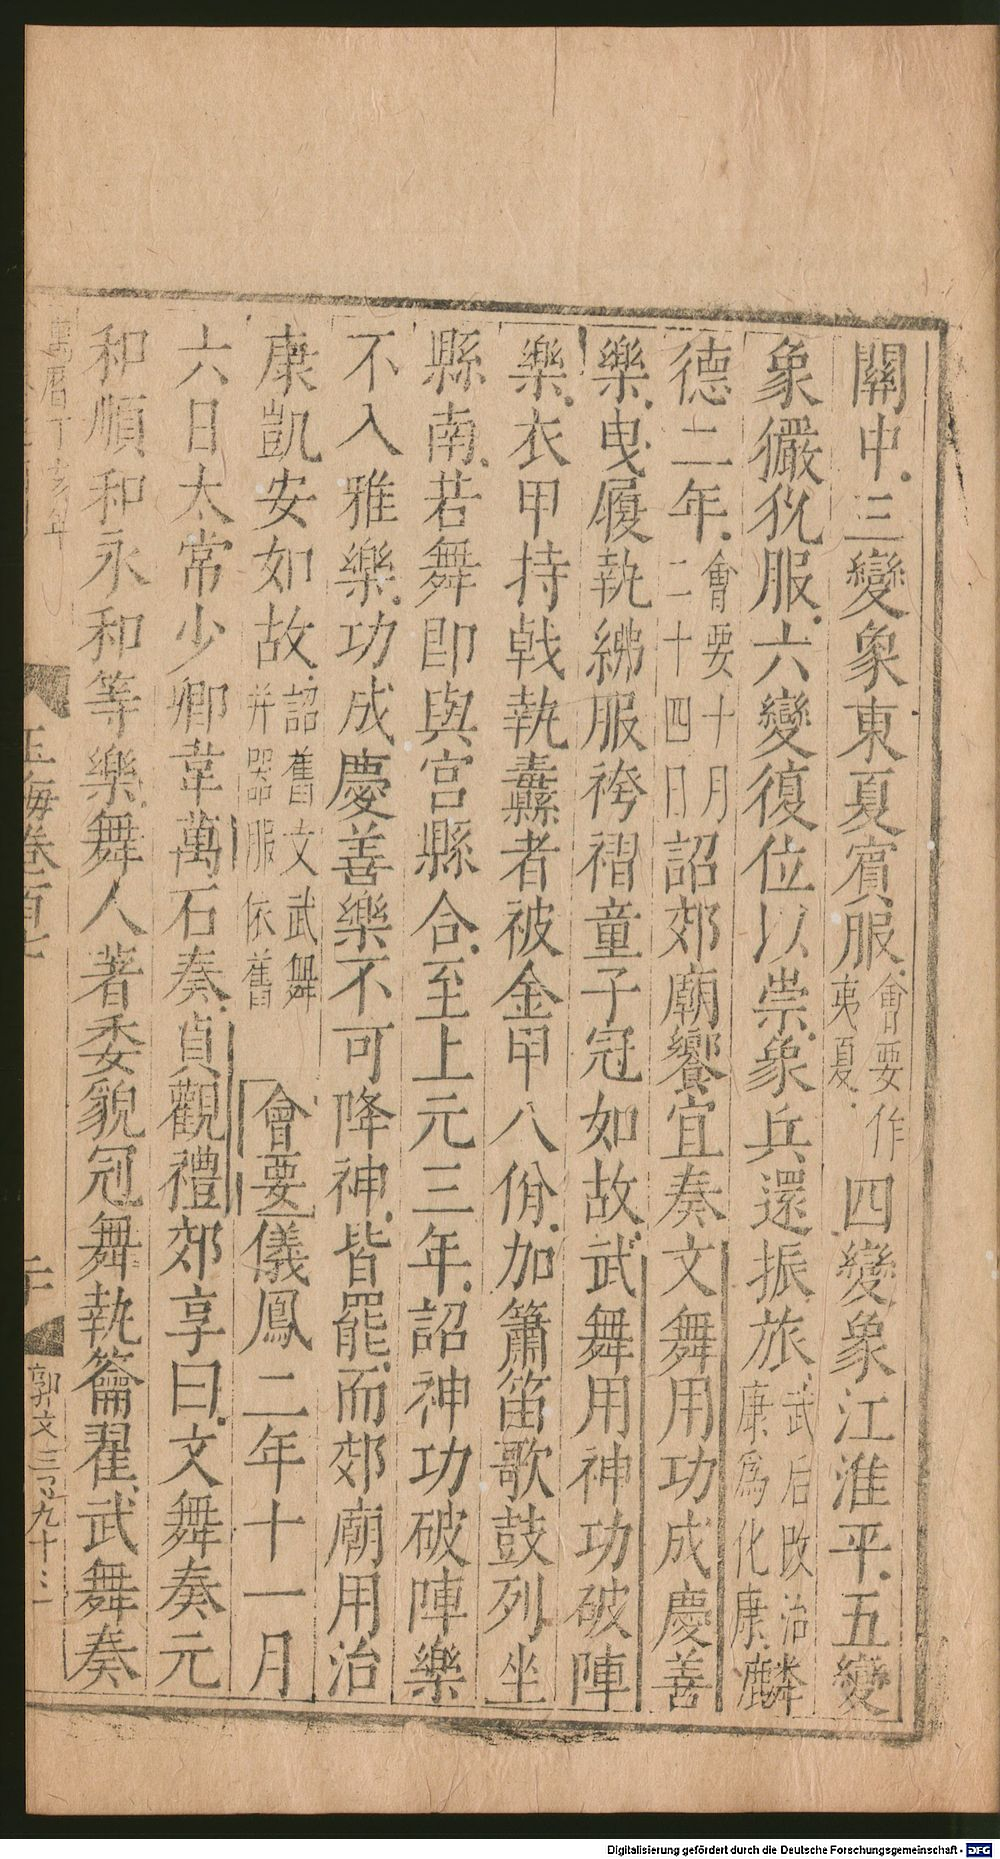 關中三變象東夏賓服會要作夷夏四變象江淮平五變
象玁狁服六變復位以崇象兵還振旅武后改治康爲化康麟
德二年會要十月二十四日詔郊廟饗宜奏文舞用功成慶善
樂曳履執紼服袴褶童子冠如故武舞用神功破陣
樂衣甲持戟執纛者被金甲八佾加簫笛歌鼓列坐
縣南若舞即與宮縣合至上元三年詔神功破陣樂
不入雅樂功成慶善樂不可降神皆罷而郊廟用治
康凱安如故詔舊文武舞并器服依舊會要儀鳳二年十一月
六日太常少卿韋萬石奏貞觀禮郊享曰文舞奏元
和順和永和等樂舞人著委貌冠舞執籥翟武舞奏
萬曆丁亥年
玉海卷一百七
二十
郭文
九十三
Digitalisierung gefördert durch die Deutsche Forschungsgemeinschaft - DFG